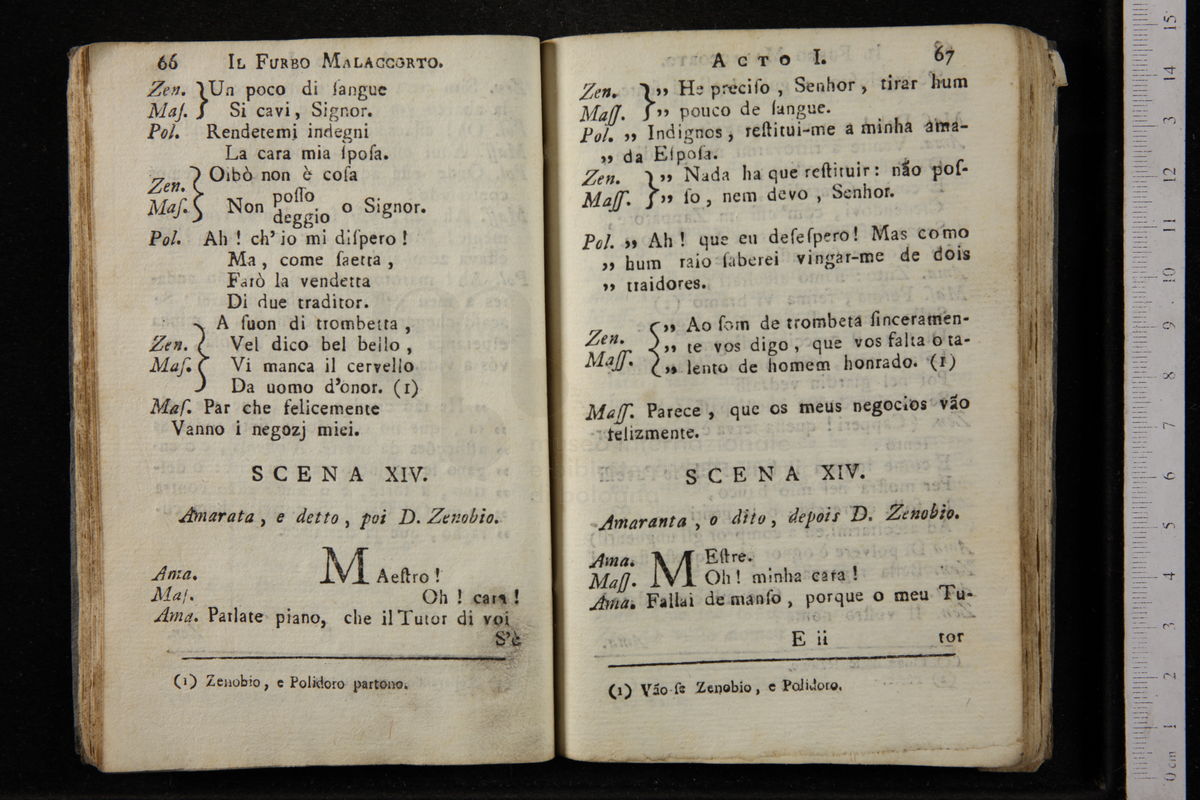 66 IL FURBO MALACCORTO.
Zen. } Un poco di ſangue
Maſ. } Si cavi, Signor.
Pol. Rendetemi indegni
La cara mia ſpoſa.
Zen. } Oibò non è coſa
Maſ. } Non poſſo deggio o Signor.
Pol. Ah ! ch' io mi diſpero !
Ma, come ſaetta ,
Farò la vendetta
Di due traditor.
A ſuon di trombetta ,
Zen. } Vel dico bel bello ,
Maſ. } Vi manca il cervello
Da uomo d'onor. (1)
Maſ. Par che felicemente
Vanno i negozj miei.
SCENA XIV.
Amarata , e detto , poi D. Zenobio.
Ama. MAeſtro !
Maſ. Oh ! cara !
Ama. Parlate piano, che il Tutor di voi
S'è
(1) Zenobio, e Polidoro partono.
ACTO I. 67
Zen. } ,, He preciſo , Senhor , tirar hum
Maſſ. } ,, pouco de ſangue.
Pol. ,, Indignos , reſtitui-me a minha ama-
,, da Eſpoſa.
Zen. } ,, Nada ha que reſtituir : não poſ-
Maſſ. } ,, ſo , nem devo , Senhor.
Pol. ,, Ah ! que eu deſeſpero ! Mas como
,, hum raio ſaberei vingar-me de dois
,, traidores.
Zen. { ,, Ao ſom de trombeta ſinceramen-
,, te vos digo , que vos falta o ta-
Maſſ. { ,, lento de homem honrado. (1)
Maſſ. Parece , que os meus negocios vão
felizmente.
SCENA XIV.
Amaranta , o dito , depois D. Zenobio.
Ama. MEſtre.
Maſſ. Oh ! minha cara !
Ama. Fallai de manſo , porque o meu Tu-
E ii tor
(1) Vão-ſe Zenobio , e Polidoro.
0 cm 1 2 3 4 5 6 7 8 9 10 11 12 13 14 15